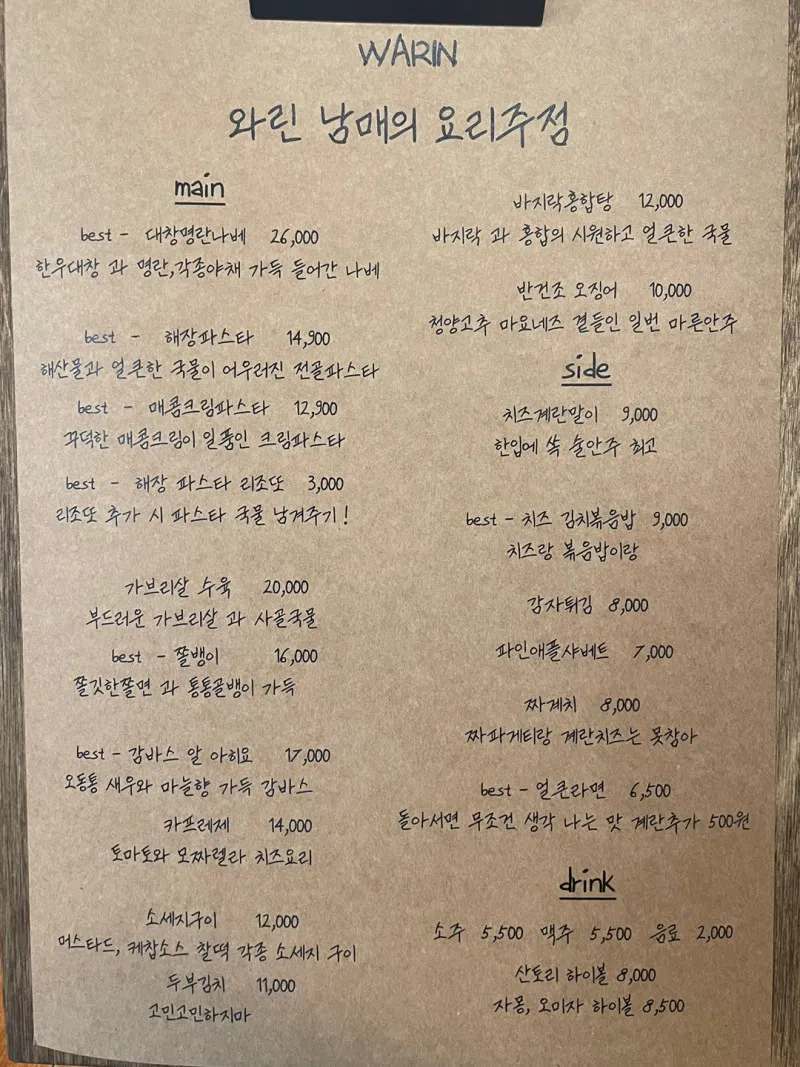 WARIN
와린 남매의 요리주점
main
best - 대창명란나베 26,000
한우대창 과 명란,각종야채 가득 들어간 나베
best - 해장파스타 14,900
해산물과 얼큰한 국물이 어우러진 전골파스타
best - 매콤크림파스타 12,900
꾸덕한 매콤크림이 일품인 크림파스타
best - 해장 파스타 리조또 3,000
리조또 추가 시 파스타 국물 남겨주기!
가브리살 수육 20,000
부드러운 가브리살 과 사골국물
best - 쫄뱅이 16,000
쫄깃한쫄면 과 통통골뱅이 가득
best - 감바스 알 아히요 17,000
오동통 새우와 마늘향 가득 감바스
카프레제 14,000
토마토와 모짜렐라 치즈요리
소세지구이 12,000
머스타드, 케찹소스 찰떡 각종 소세지 구이
두부김치 11,000
고민고민하지마
바지락홍합탕 12,000
바지락 과 홍합의 시원하고 얼큰한 국물
반건조 오징어 10,000
청양고추 마요네즈 곁들인 일번 마른안주
side
치즈계란말이 9,000
한입에 쏙 술안주 최고
best - 치즈 김치볶음밥 9,000
치즈랑 볶음밥이랑
감자튀김 8,000
파인애플샤베트 7,000
짜계치 8,000
짜파게티랑 계란치즈는 못참아
best - 얼큰라면 6,500
돌아서면 무조건 생각 나는 맛 계란추가 500원
drink
소주 5,500 맥주 5,500 음료 2,000
산토리 하이볼 8,000
자몽, 오미자 하이볼 8,500